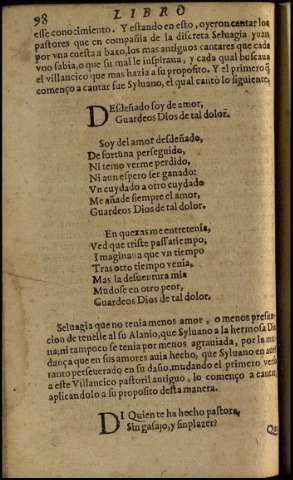 98
LIBRO
esse conocimiento. Y estando en esto, oyeron cantar los
pastores que en compañia de la discreta Seluagia yuan
por vna cuesta a baxo, los mas antiguos cantares que cada
vno sabia, o que su mal le inspiraua, y cada qual buscaua
el villancico que mas hazia a su proposito. Y el primero q̃
començo a cantar fue Syluano, el qual canto lo siguiente,
DEsdeñado soy de amor,
Guardeos Dios de tal dolor.
Soy del amor desdeñado,
De fortuna perseguido,
Ni temo verme perdido,
Ni aun espero ser ganado:
Vn cuydado a otro cuydado
Me añade siempre el amor,
Guardeos Dios de tal dolor.
En quexas me entretenia,
Ved que triste passatiempo,
Imaginaua que vn tiempo
Tras otro tiempo venia,
Mas la desuentura mia
Mudose en otro peor,
Guardeos Dios de tal dolor.
Seluagia que no tenia menos amor, o menos presun-
cion de tenelle al su Alanio, que Syluano a la hermosa Dia
na, ni tampoco se tenia por menos agrauiada, por la mu-
dança que en sus amores auia hecho, que Syluano en auer
tanto perseuerado en su daño, mudando el primero verso
a este Villancico pastoril antiguo, lo començo a cantar,
aplicandolo a su proposito desta manera.
DI Quien te ha hecho pastora,
Sin gasajo, y sin plazer?